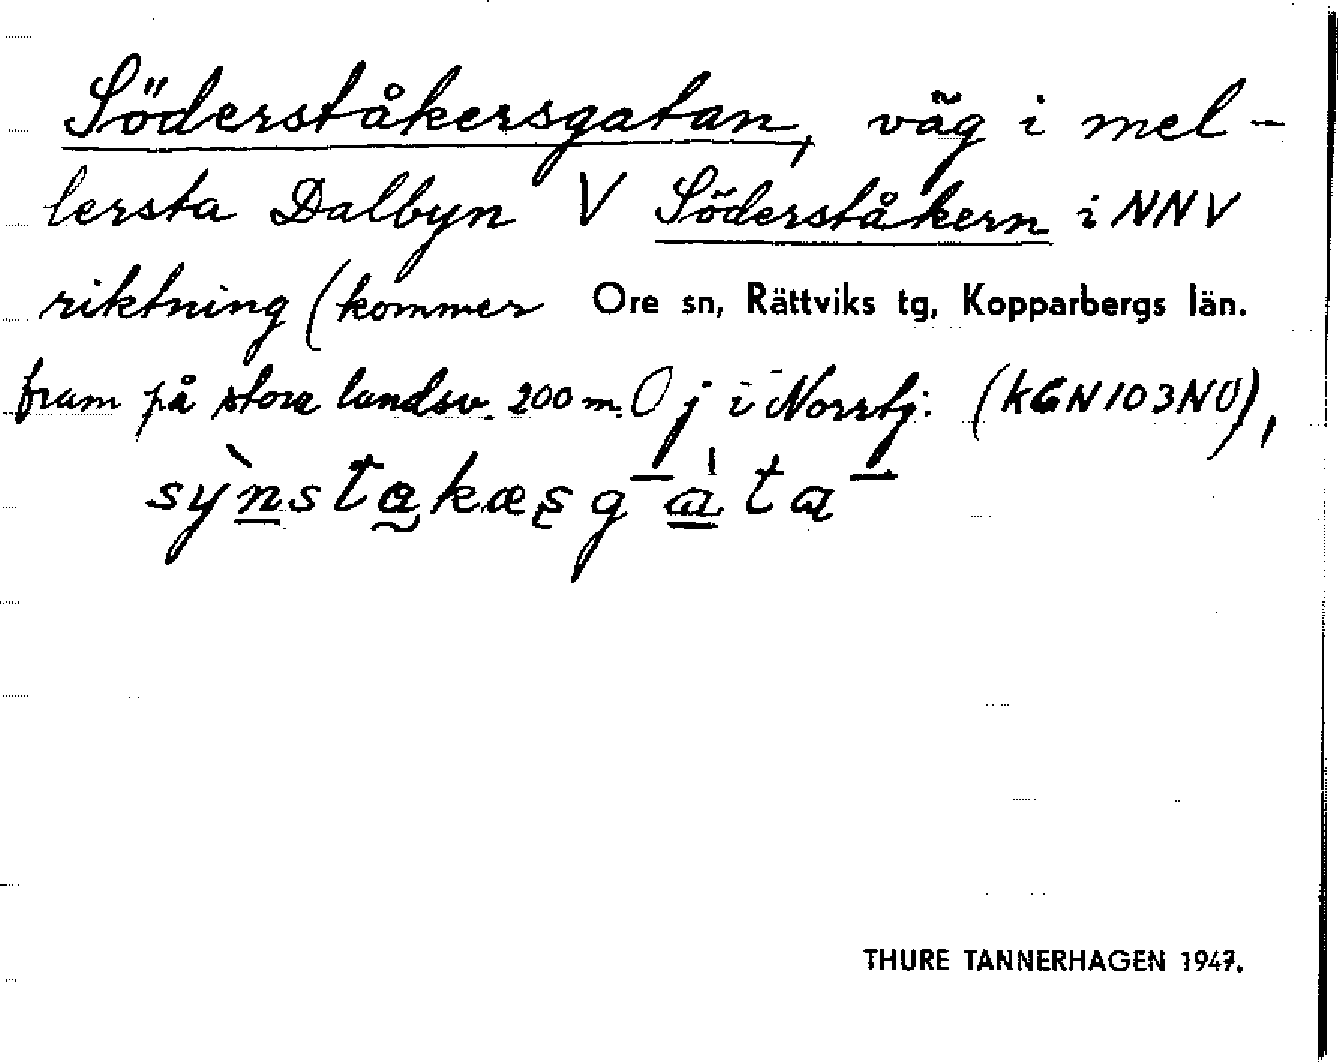 Söderståkersgatan, väg i mel-
lersta Dalbyn V Söderståkern i NNV
riktning (kommer Ore sn, Rättviks tg, Kopparbergs län.
fram på stora landsv. 200 m. O j i Norrtj. (kGN103NO),
sỳnstakæsg‾a̍ta‾
THURE TANNERHAGEN 1947.